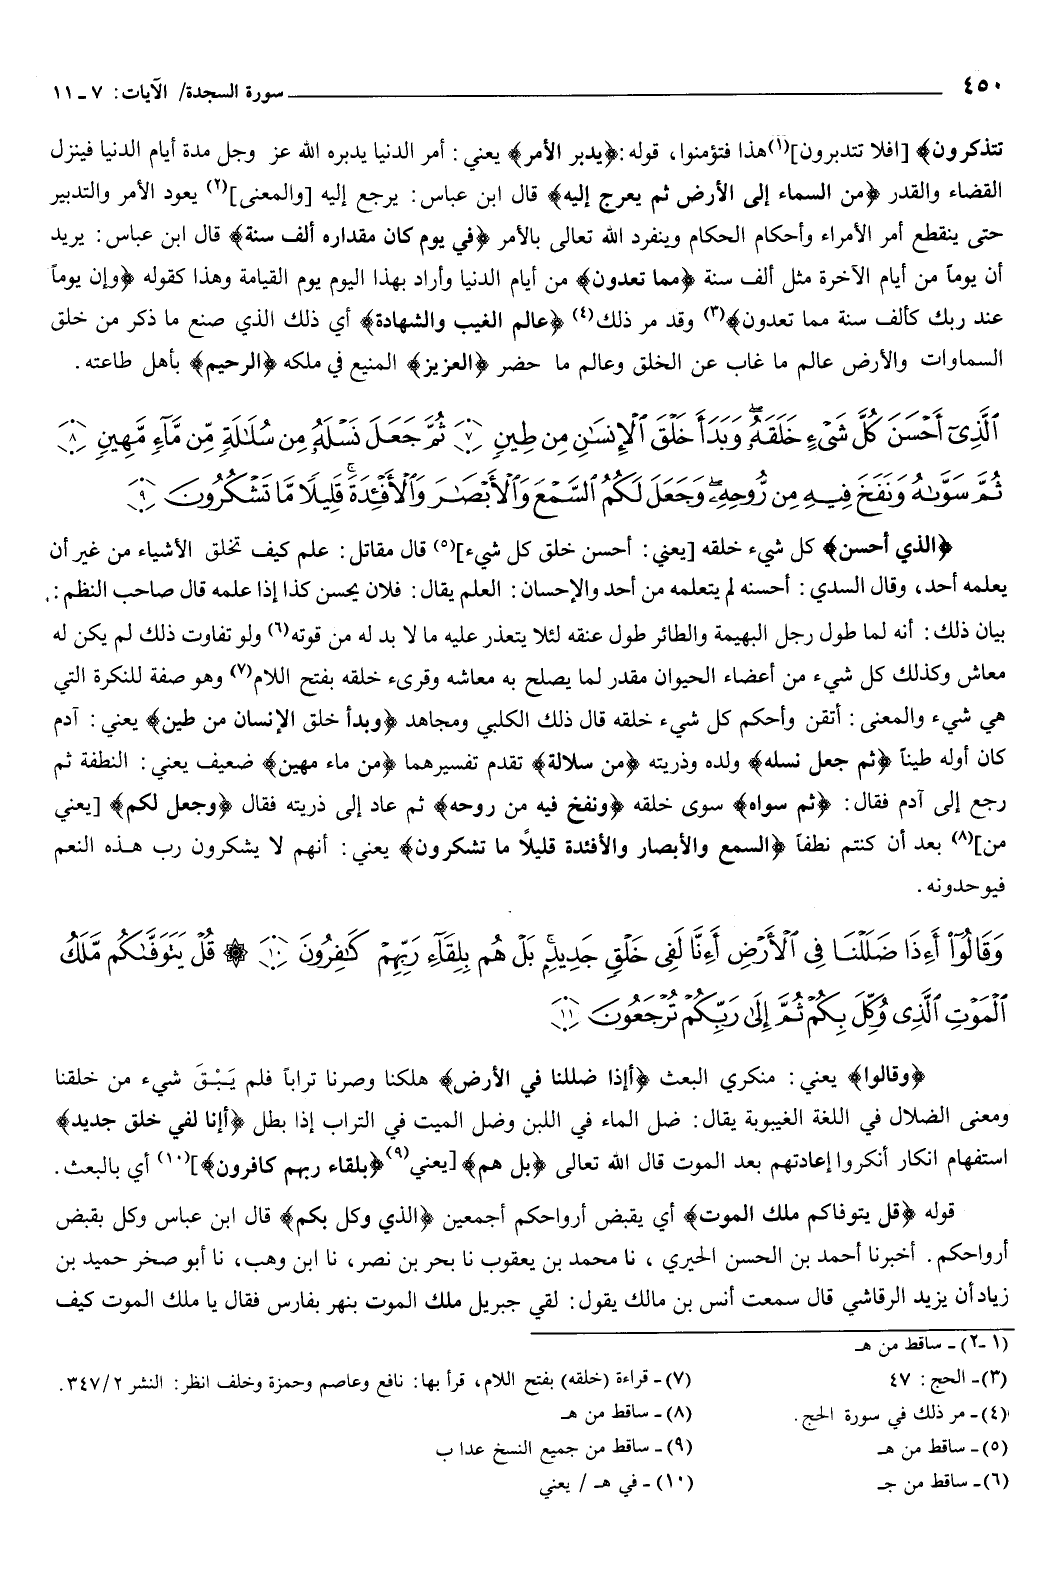 ٤٥٠ سورة السجدة/ الآيات: ٧ ـ ١١
تتذكرون﴾ [افلا تتدبرون](١)هذا فتؤمنوا، قوله:﴿يدبر الأمر﴾ يعني: أمر الدنيا يدبره الله عز وجل مدة أيام الدنيا فينزل
القضاء والقدر ﴿من السماء إلى الأرض ثم يعرج إليه﴾ قال ابن عباس: يرجع إليه [والمعنى](٢) يعود الأمر والتدبير
حتى ينقطع أمر الأمراء وأحكام الحكام وينفرد الله تعالى بالأمر ﴿في يوم كان مقداره ألف سنة﴾ قال ابن عباس: يريد
أن يوماً من أيام الآخرة مثل ألف سنة ﴿مما تعدون﴾ من أيام الدنيا وأراد بهذا اليوم يوم القيامة وهذا كقوله ﴿وإن يوماً
عند ربك كألف سنة مما تعدون﴾(٣) وقد مر ذلك(٤) ﴿عالم الغيب والشهادة﴾ أي ذلك الذي صنع ما ذكر من خلق
السماوات والأرض عالم ما غاب عن الخلق وعالم ما حضر ﴿العزيز﴾ المنيع في ملكه ﴿الرحيم﴾ بأهل طاعته.
ٱلَّذِىٓ أَحْسَنَ كُلَّ شَىْءٍ خَلَقَهُۥۖ وَبَدَأَ خَلْقَ ٱلْإِنسَٰنِ مِن طِينٍ ۝٧ ثُمَّ جَعَلَ نَسْلَهُۥ مِن سُلَٰلَةٍ مِّن مَّآءٍ مَّهِينٍ ۝٨
ثُمَّ سَوَّىٰهُ وَنَفَخَ فِيهِ مِن رُّوحِهِۦۖ وَجَعَلَ لَكُمُ ٱلسَّمْعَ وَٱلْأَبْصَٰرَ وَٱلْأَفْـِٔدَةَۚ قَلِيلًا مَّا تَشْكُرُونَ ۝٩
﴿الذي أحسن﴾ كل شيء خلقه [يعني: أحسن خلق كل شيء](٥) قال مقاتل: علم كيف تخلق الأشياء من غير أن
يعلمه أحد، وقال السدي: أحسنه لم يتعلمه من أحد والإحسان: العلم يقال: فلان يحسن كذا إذا علمه قال صاحب النظم:
بيان ذلك: أنه لما طول رجل البهيمة والطائر طول عنقه لئلا يتعذر عليه ما لا بد له من قوته(٦) ولو تفاوت ذلك لم يكن له
معاش وكذلك كل شيء من أعضاء الحيوان مقدر لما يصلح به معاشه وقرىء خلقه بفتح اللام(٧) وهو صفة للنكرة التي
هي شيء والمعنى: أتقن وأحكم كل شيء خلقه قال ذلك الكلبي ومجاهد ﴿وبدأ خلق الإنسان من طين﴾ يعني: آدم
كان أوله طيناً ﴿ثم جعل نسله﴾ ولده وذريته ﴿من سلالة﴾ تقدم تفسيرهما ﴿من ماء مهين﴾ ضعيف يعني: النطفة ثم
رجع إلى آدم فقال: ﴿ثم سواه﴾ سوى خلقه ﴿ونفخ فيه من روحه﴾ ثم عاد إلى ذريته فقال ﴿وجعل لكم﴾ [يعني
من](٨) بعد أن كنتم نطفاً ﴿السمع والأبصار والأفئدة قليلاً ما تشكرون﴾ يعني: أنهم لا يشكرون رب هذه النعم
فيوحدونه.
وَقَالُوٓا۟ أَءِذَا ضَلَلْنَا فِى ٱلْأَرْضِ أَءِنَّا لَفِى خَلْقٍ جَدِيدٍۭۚ بَلْ هُم بِلِقَآءِ رَبِّهِمْ كَٰفِرُونَ ۝١٠ ۞ قُلْ يَتَوَفَّىٰكُم مَّلَكُ
ٱلْمَوْتِ ٱلَّذِى وُكِّلَ بِكُمْ ثُمَّ إِلَىٰ رَبِّكُمْ تُرْجَعُونَ ۝١١
﴿وقالوا﴾ يعني: منكري البعث ﴿أإذا ضللنا في الأرض﴾ هلكنا وصرنا تراباً فلم يَبْقَ شيء من خلقنا
ومعنى الضلال في اللغة الغيبوبة يقال: ضل الماء في اللبن وضل الميت في التراب إذا بطل ﴿أإنا لفي خلق جديد﴾
استفهام انكار أنكروا إعادتهم بعد الموت قال الله تعالى ﴿بل هم﴾ [يعني(٩) ﴿بلقاء ربهم كافرون﴾](١٠) أي بالبعث.
قوله ﴿قل يتوفاكم ملك الموت﴾ أي يقبض أرواحكم أجمعين ﴿الذي وكل بكم﴾ قال ابن عباس وكل بقبض
أرواحكم. أخبرنا أحمد بن الحسن الحيري، نا محمد بن يعقوب نا بحر بن نصر، نا ابن وهب، نا أبو صخر حميد بن
زياد أن يزيد الرقاشي قال سمعت أنس بن مالك يقول: لقي جبريل ملك الموت بنهر بفارس فقال يا ملك الموت كيف
(١ -٢) - ساقط من هـ
(٣)- الحج: ٤٧
(٤)- مر ذلك في سورة الحج.
(٥)- ساقط من هـ
(٦)- ساقط من جـ
(٧)- قراءة (خلقه) بفتح اللام، قرأ بها: نافع وعاصم وحمزة وخلف انظر: النشر ٣٤٧/٢.
(٨)- ساقط من هـ
(٩)- ساقط من جميع النسخ عدا ب
(١٠)- في هـ / يعني